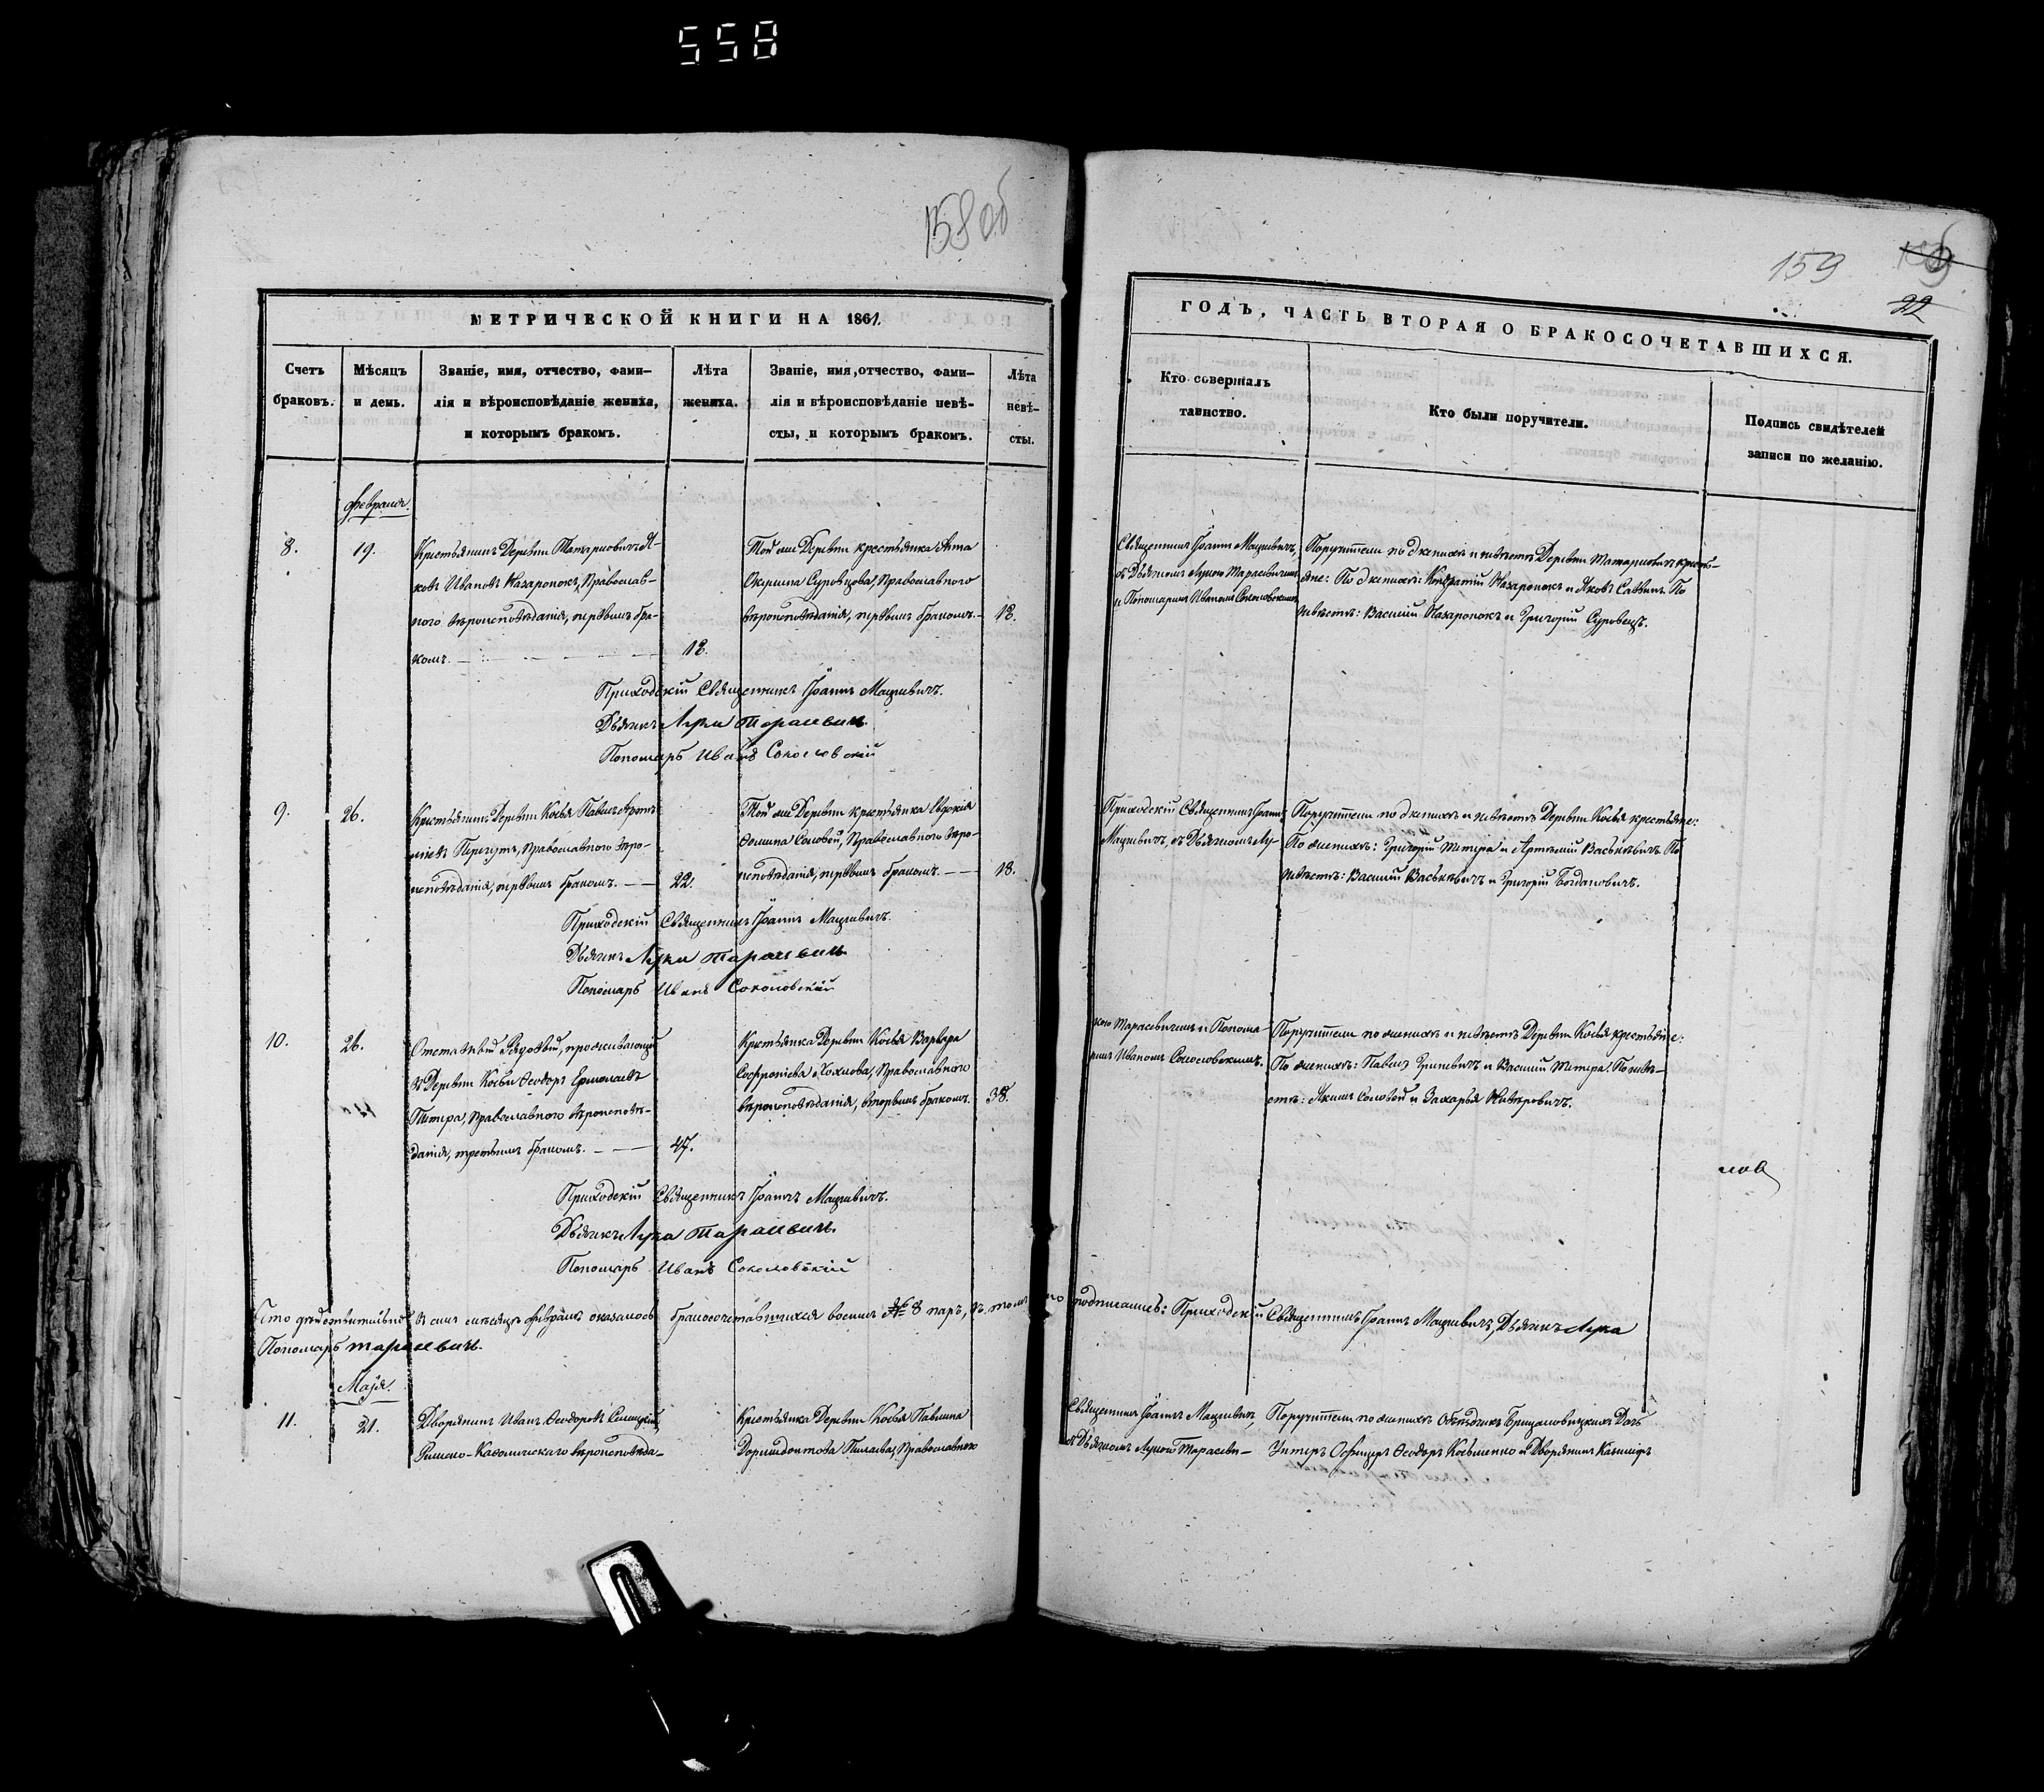 558
158 об
159
22
МЕТРИЧЕСКОЙ КНИГИ НА 1861.
Счетъ
браковъ.
Мѣсяцъ
и день.
Званіе, имя, отчество, фами-
лія и вѣроисповѣданіе жениха,
и которымъ бракомъ.
Лѣта
жениха.
Званіе, имя, отчество, фами-
лія и вѣроисповѣданіе невѣ-
сты, и которымъ бракомъ.
Лѣта
невѣ-
сты.
Февраля.
8.
19.
Крестьянинъ Деревни Татарновичъ Я-
ковъ Ивановъ Назаронокъ, Православ-
ного вѣроисповѣданія, первымъ бра-
комъ.
18.
Той же Деревни крестьянка Анна
Суровцова, Православного
вѣроисповѣданія, первымъ бракомъ.
18.
Приходскій Священникъ Іоаннъ Мацкевичъ.
Дьячекъ Лука Тарасевичъ
Пономарь Иванъ Соколовскій
9.
26.
Крестьянинъ Деревни Косья Павелъ Артемъ-
Православного вѣро-
исповѣданія, первымъ бракомъ.
22.
Той же Деревни крестьянка Евдокія
Ѳомина Соловей, Православного вѣро-
исповѣданія, первымъ бракомъ.
18.
Приходскій Священникъ Іоаннъ Мацкевичъ.
Дьячекъ Лука Тарасевичъ
Пономарь Иванъ Соколовскій
10.
26.
Отставный Рядовый, проживающій
въ Деревни Косьи Ѳеодоръ Ермолаевъ
Тетера, Православного вѣроисповѣ-
данія, третьимъ бракомъ.
47.
Крестьянка Деревни Косья Варвара
Софроніева Хохлова, Православного
вѣроисповѣданія, вторымъ бракомъ.
38.
Приходскій Священникъ Іоаннъ Мацкевичъ.
Дьячекъ Лука Тарасевичъ.
Пономарь Иванъ Соколовскій
Что дѣйствительно въ семъ мѣсяцѣ Февралѣ оказалось бракосочетавшихся восемь № 8 паръ, въ томъ
Пономарь Тарасевичъ.
Маія.
11.
21.
Дворянинъ Иванъ Ѳеодоровъ
Римско-Каѳолическаго вѣроисповѣда-
Крестьянка Деревни Косья Павлина
Православного
ГОДЪ, ЧАСТЬ ВТОРАЯ О БРАКОСОЧЕТАВШИХСЯ.
Кто совершалъ
таинство.
Кто были поручители.
Подпись свидѣтелей
записи по желанію.
Священникъ Іоаннъ Мацкевичъ,
съ Дьячкомъ Лукою Тарасевичемъ
и Пономаремъ Иваномъ Соколовскимъ.
Поручители по женихѣ и невѣстѣ Деревни Татарновичъ крестья-
яне: По женихѣ: Кондратій Назаронокъ и Яковъ Саввинъ. По
невѣстѣ: Василій Назаронокъ и Григорій Суровецъ.
Приходскій Священникъ Іоаннъ
Мацкевичъ, съ Дьячкомъ Лу-
Поручители по женихѣ и невѣстѣ Деревни Косья крестьяне:
По женихѣ: Григорій Тетера и Артемій Васькевичъ. По
невѣстѣ: Василій Васькевичъ и Григорій Богдановичъ.
кою Тарасевичемъ и Понома-
ремъ Иваномъ Соколовскимъ.
Поручители по женихѣ и невѣстѣ Деревни Косья крестьяне:
По женихѣ: Павелъ Гриневичъ и Василій Тетера. По невѣ-
стѣ: Якимъ Соловей и Захарья
лов
подписались: Приходскій Священникъ Іоаннъ Мацкевичъ, Дьячекъ Лука
Священникъ Іоаннъ Мацкевичъ,
съ Дьячкомъ Лукою Тарасеви-
Поручители по женихѣ Объѣздчикъ Дачъ
Унтеръ Офицеръ Ѳеодоръ Косьменко и Дворянинъ Казиміръ